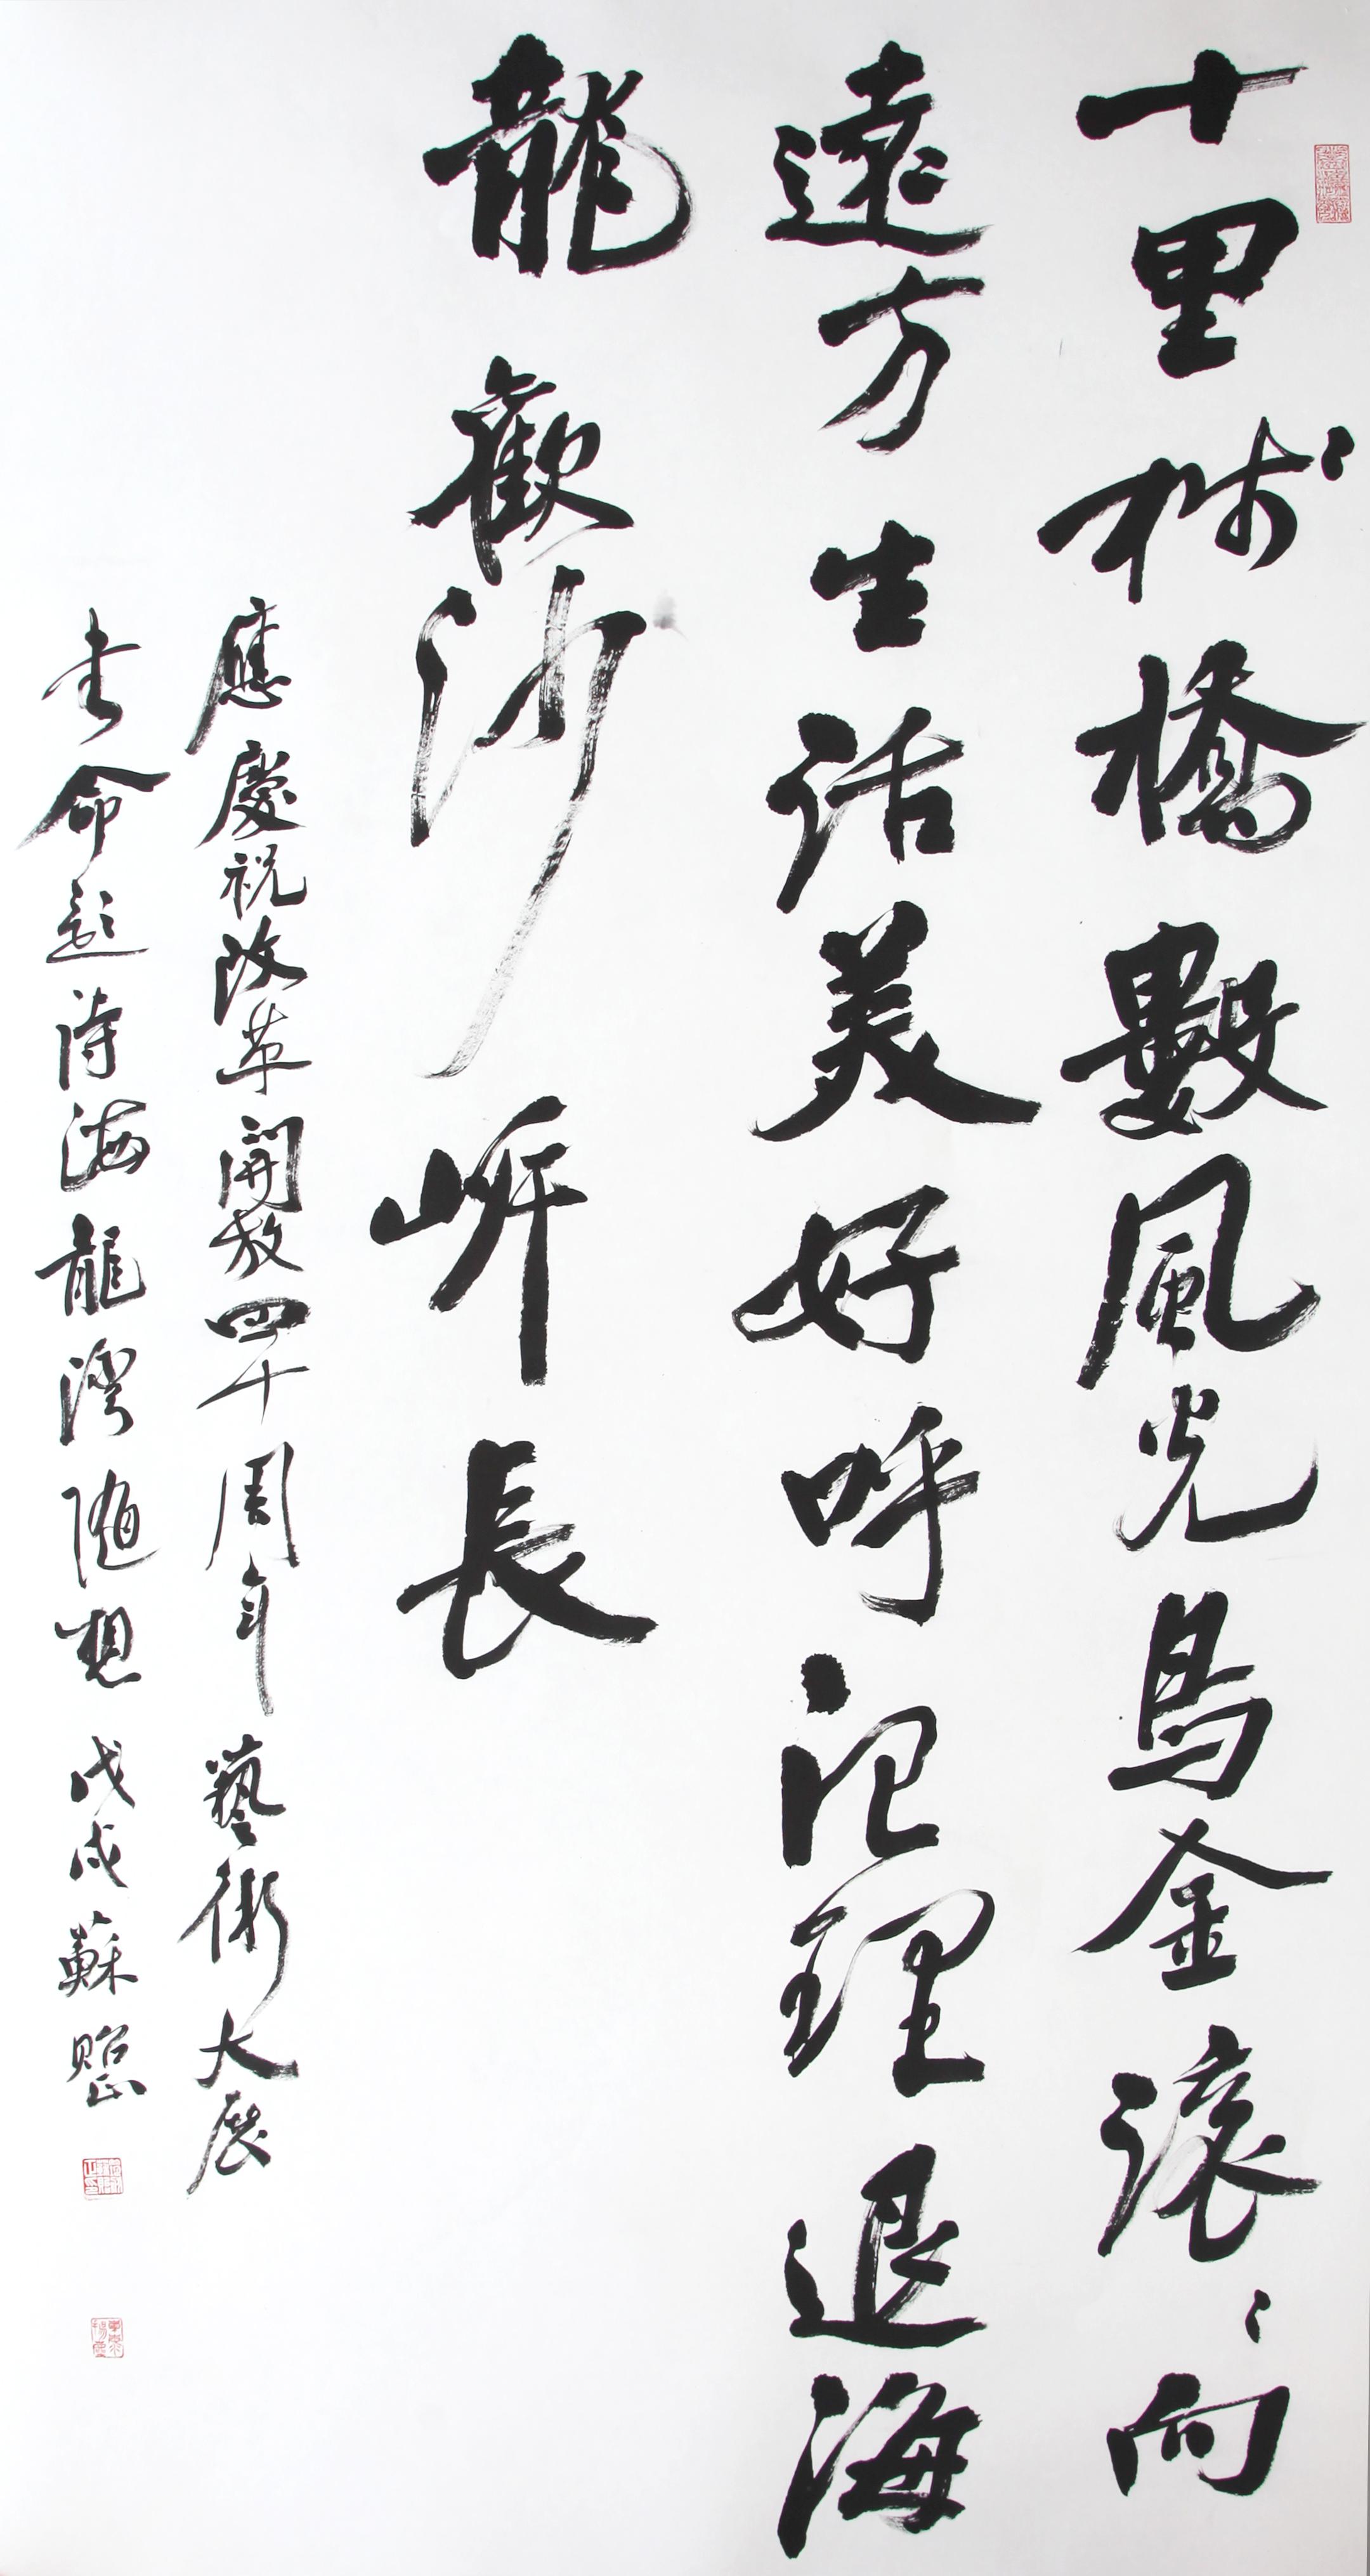 十里栈橋數風光烏金滾〻向
遠方生活美好呼治理退海
龍歡沙岸長
應慶祝改革開放四十周年藝術大展
書命題詩海龍灣隨想 戊戌蘇